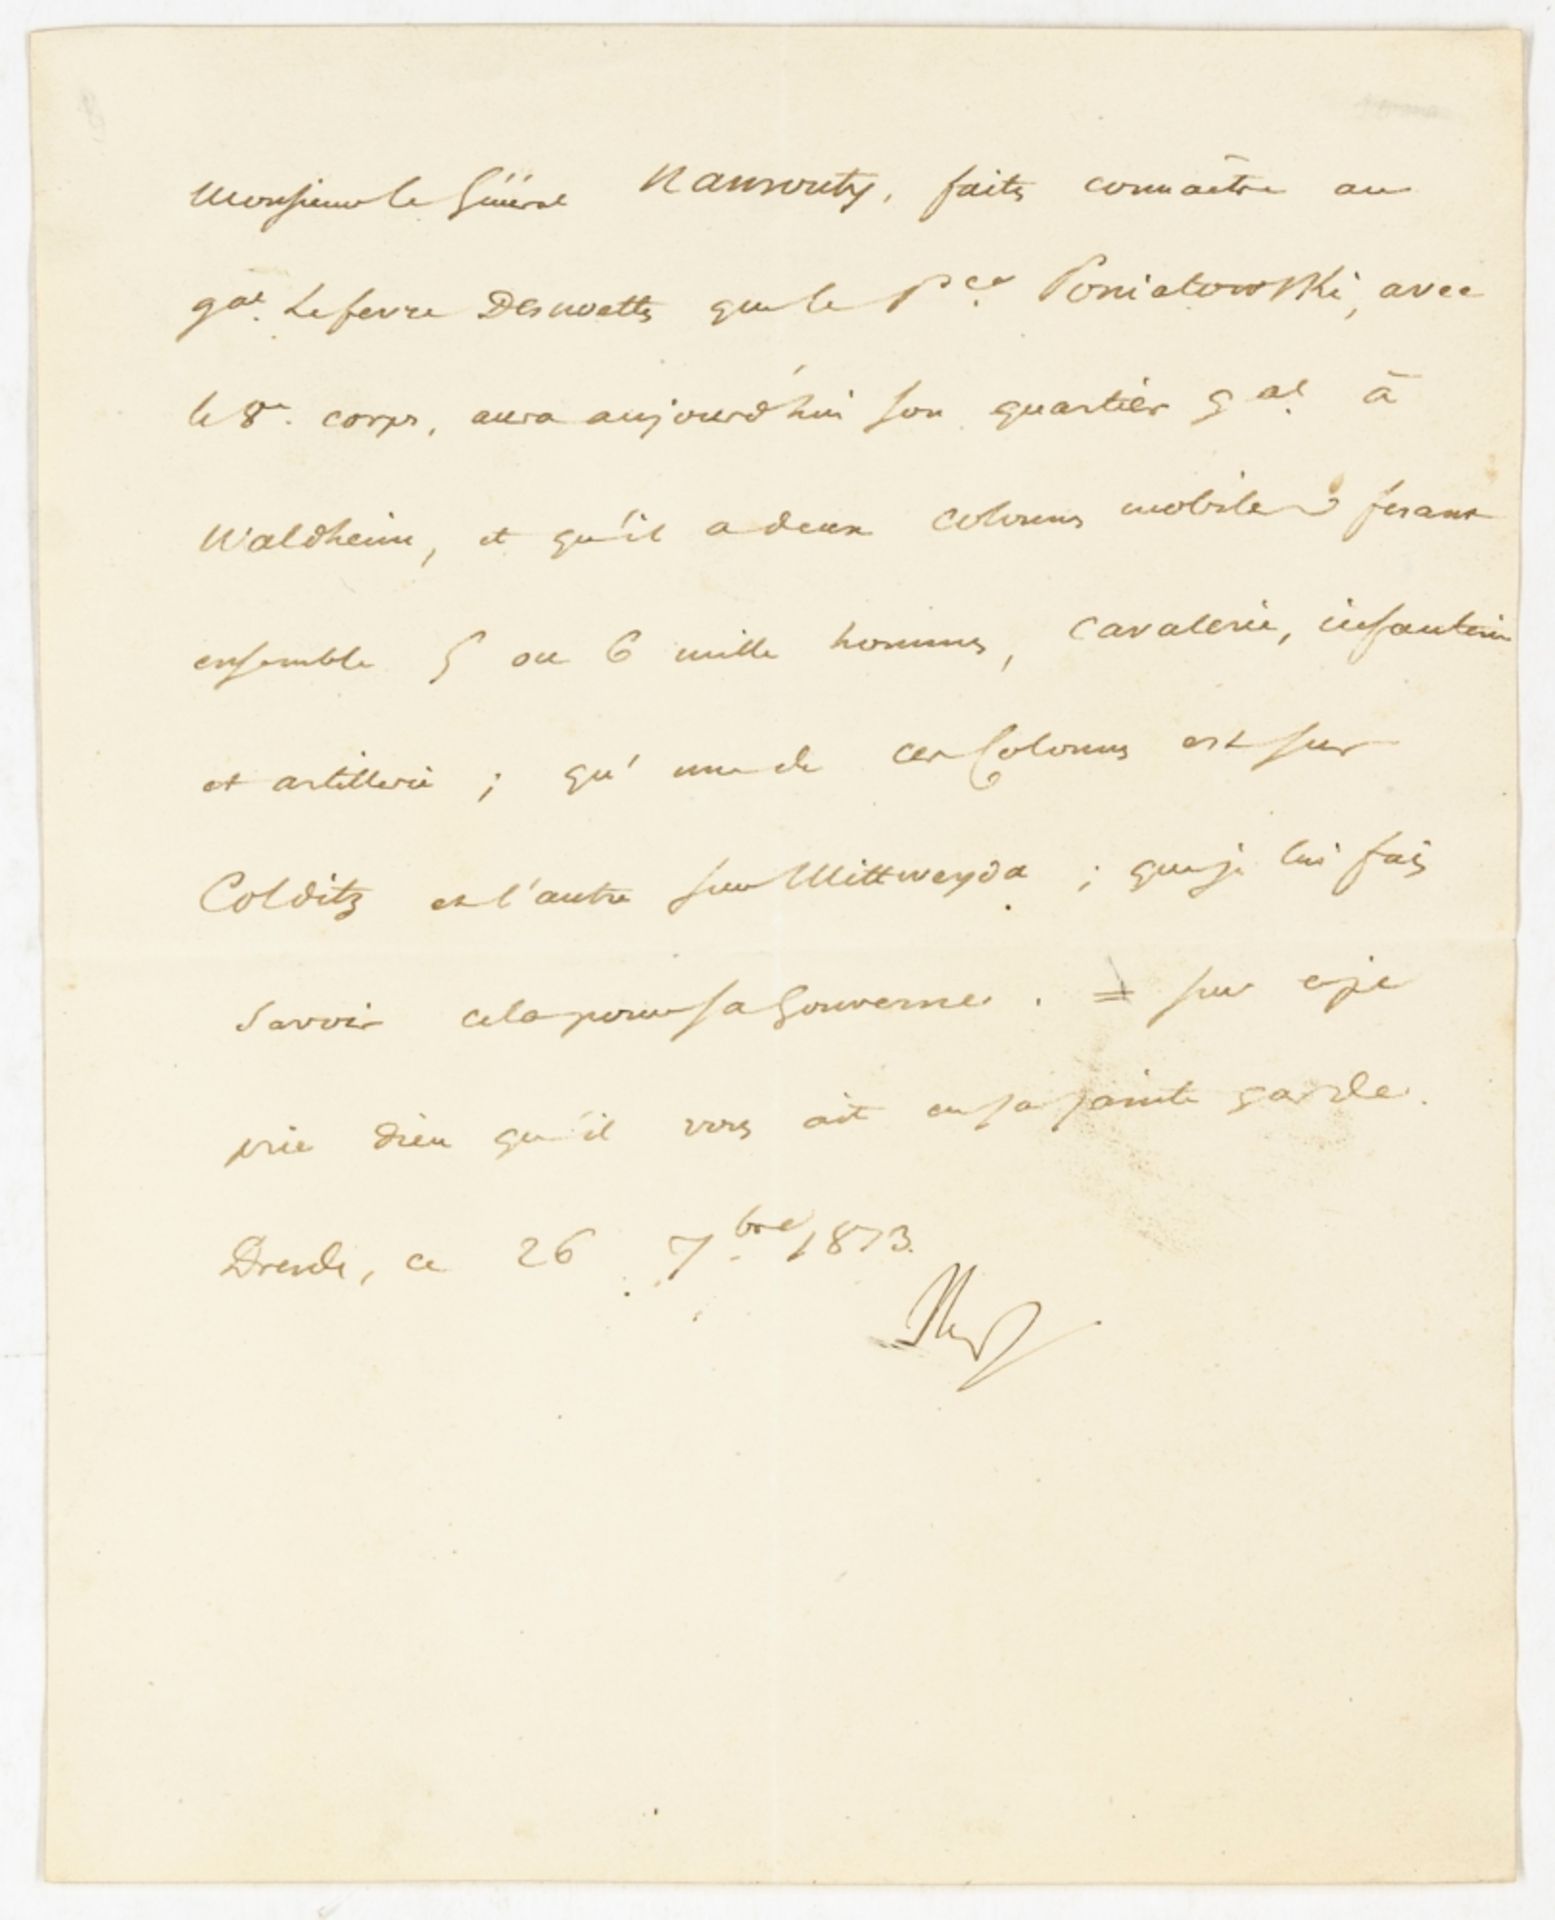 Monsieur le Général Nansouty, faites connaître au
gal. Lefevre Desnoettes que le Pce. Poniatowski, avec
le 8e. corps, aura aujourd'hui son quartier gal. à
Waldheim, et qu'il a deux colonnes mobiles fesant
ensemble 5 ou 6 mille hommes, cavalerie, infanterie
et artillerie ; qu'une de ces Colonnes est sur
Colditz et l'autre sur Mittweyda ; que je lui fais
savoir cela pour sa Gouverne. = sur ce je
prie dieu qu'il vous ait en sa sainte garde.
Dresde, ce 26 7bre 1813.
Nap